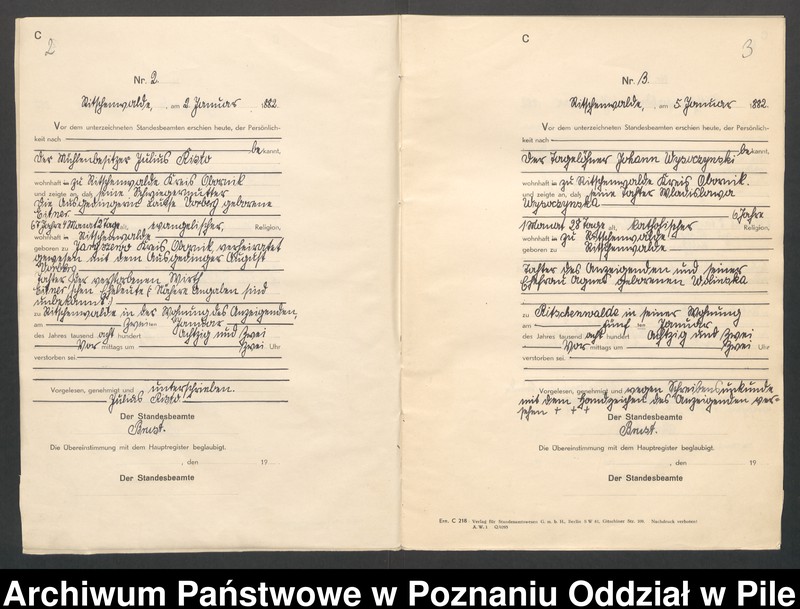 C
2
Nr. 2.
Ritschenwalde, am 2. Januar 1882.
Vor dem unterzeichneten Standesbeamten erschien heute, der Persönlich-
keit nach
be kannt,
der Mühlenbesitzer Julius Kisto
wohnhaft in zu Ritschenwalde Kreis Obornik
und zeigte an, daß seine Schwiegermutter
die Ausgedingerin Louise Vorberg geborene
Eitner
67 Jahre 4 Monat 2 Tage alt, evangelischer Religion,
wohnhaft in Ritschenwalde
geboren zu Kreis Obornik verheiratet
gewesen mit dem Ausgedinger August
Vorberg
Tochter der verstorbenen Wirth
Eitner'schen Eheleute (Nähere Angaben sind
unbekannt)
zu Ritschenwalde in der Wohnung des Anzeigenden,
am zweiten Januar
des Jahres tausend acht hundert Achtzig und zwei
Vor mittags um zwei Uhr
verstorben sei.
Vorgelesen, genehmigt und unterschrieben.
Julius Kisto
Der Standesbeamte
Die Übereinstimmung mit dem Hauptregister beglaubigt.
, den 19
Der Standesbeamte
C
3
Nr. 3.
Ritschenwalde, am 5 Januar 1882.
Vor dem unterzeichneten Standesbeamten erschien heute, der Persönlich-
keit nach
be kannt,
der Tagelöhner Johann Wysoczynski
wohnhaft in zu Ritschenwalde Kreis Obornik.
und zeigte an, daß seine Tochter Wladislawa
Wysoczynska
6 Jahre
1 Monat 28 Tage alt, katholischer Religion,
wohnhaft in zu Ritschenwalde
geboren zu Ritschenwalde
Tochter des Anzeigenden und seiner
Ehefrau Agnes geborenen Wolinska
zu Ritschenwalde in seiner Wohnung
am fünf ten Januar
des Jahres tausend acht hundert Achtzig und zwei
Vor mittags um zwei Uhr
verstorben sei.
Vorgelesen, genehmigt und wegen Schreibensunkunde
mit dem Handzeichen des Anzeigenden ver-
sehen + + +
Der Standesbeamte
Die Übereinstimmung mit dem Hauptregister beglaubigt.
, den 19
Der Standesbeamte
Ern. C 218 Verlag für Standesamtswesen G. m. b. H., Berlin S W 61, Gitschiner Str. 109. Nachdruck verboten!
Archiwum Państwowe w Poznaniu Oddział w Pile